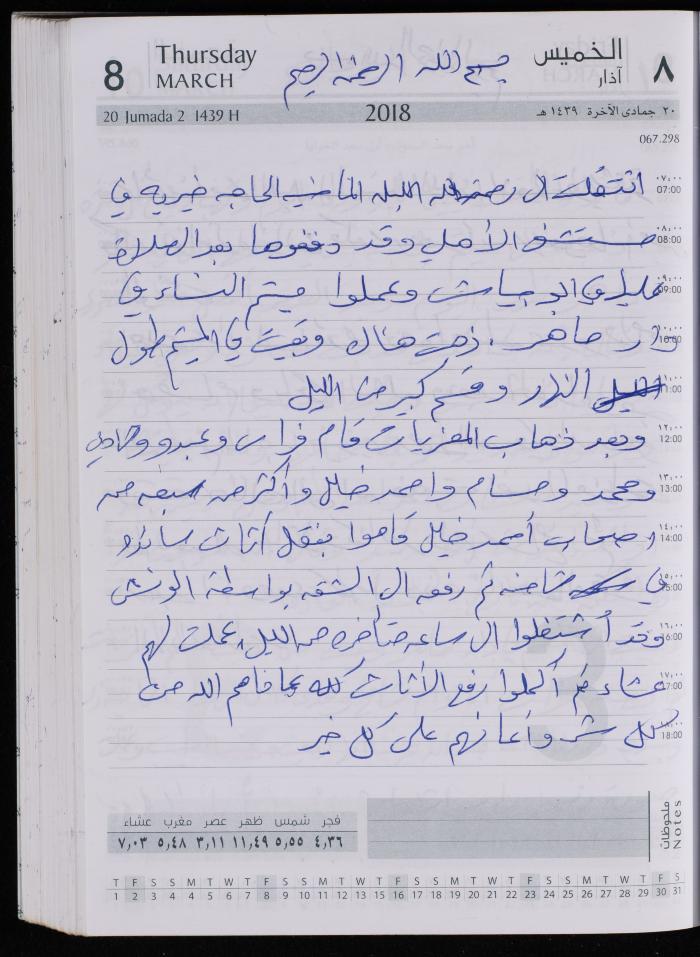 8 Thursday MARCH بسم الله الرحمن الرحيم الخميس آذار ٨
20 Jumada 2 1439 H 2018 ٢٠ جمادى الآخرة ١٤٣٩ هـ
067.298
٠٧:٠٠ 07:00 انتقلت الى رحمة الله الليله الماضيه الحاجه خيريه في
٠٨:٠٠ 08:00 مستشفى الأهلي وقد دفنوها بعد الصلاة
٠٩:٠٠ 09:00 عليها في وعملوا ميتم النساء في
١٠:٠٠ 10:00 دار ماهر . ذهبت هناك وبقيت في الميتم طول
١١:٠٠ 11:00 الليل النهار وقسم كبير من الليل
١٢:٠٠ 12:00 وبعد ذهاب المعزيات قام فراس وعبدو
١٣:٠٠ 13:00 ومحمد وحسام واحمد خليل وأكثر من سبعه من
١٤:٠٠ 14:00 اصحاب أحمد خليل قاموا بنقل أثاث
١٥:٠٠ 15:00 في شاحنه ثم رفعه الى الشقه بواسطة الونش
١٦:٠٠ 16:00 وقد أشتغلوا الى ساعه متأخره من الليل، عملت لهم
١٧:٠٠ 17:00 عشاء ثم أكملوا رفع الأثاث كله عافاهم الله من
١٨:٠٠ 18:00 كل شر وأعانهم على كل خير
فجر شمس ظهر عصر مغرب عشاء
٤,٣٦ ٥,٥٥ ١١,٤٩ ٣,١١ ٥,٤٨ ٧,٠٣
ملحوظات Notes
T F S S M T W T F S S M T W T F S S M T W T F S S M T W T F S
1 2 3 4 5 6 7 8 9 10 11 12 13 14 15 16 17 18 19 20 21 22 23 24 25 26 27 28 29 30 31